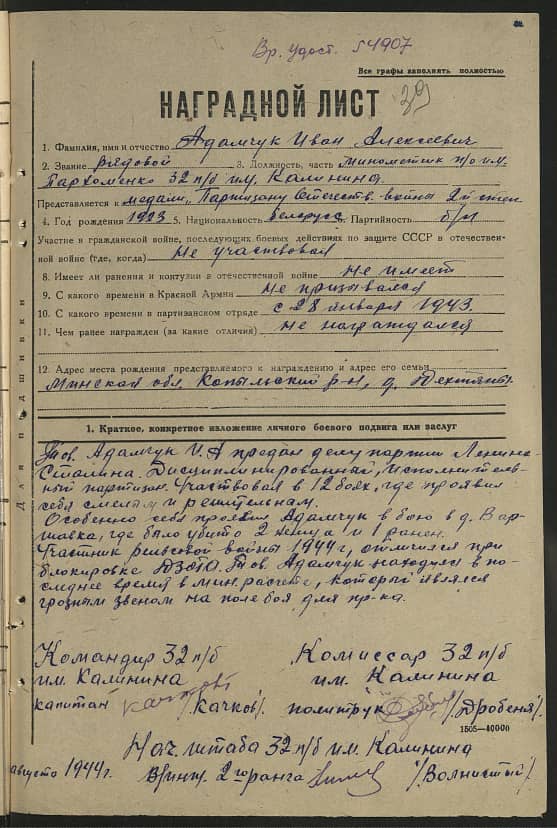 Вр. удост. 54907
Все графы заполнять полностью
НАГРАДНОЙ ЛИСТ 39
1. Фамилия, имя и отчество Адамчук Иван Алексеевич
2. Звание рядовой 3. Должность, часть минометчик п/о им.
Пархоменко 32 п/б им. Калинина.
Представляется к медали „Партизану Отечеств. войны" 2й степ
4. Год рождения 1923 5. Национальность белорус 6. Партийность б/п
Участие в гражданской войне, последующих боевых действиях по защите СССР в отечествен-
ной войне (где, когда) Не участвовал
8. Имеет ли ранения и контузии в отечественной войне Не имеет
9. С какого времени в Красной Армии Не призывался
10. С какого времени в партизанском отряде с 28 января 1943.
11. Чем ранее награжден (за какие отличия) Не награждался
12. Адрес места рождения представляемого к награждению и адрес его семьи
Минская обл. Копыльский р-н, д.
Для подшивки
1. Краткое, конкретное изложение личного боевого подвига или заслуг
Тов. Адамчук И.А предан делу партии Ленина-
Сталина. Дисциплинированный, исполнитель-
ный партизан. Участвовал в 12 боях, где проявил
себя смелым и решительным.
Особенно себя проявил Адамчук в бою в д. Вар-
шавка, где было убито 2 немца и 1 ранен.
Участник рельсовой войны 1944 г, отличился при
блокировке ДЗОТО. Тов. Адамчук находился в по-
следнее время в мин. расчете, который являлся
грозным звеном на поле боя для пр-ка.
Командир 32 п/б Комиссар 32 п/б
им. Калинина им. Калинина
капитан /Качков/. политрук /Дробеня/.
1505—40000
Нач. штаба 32 п/б им. Калинина
августа 1944 г. В/инж. 2го ранга /Волнистый/.